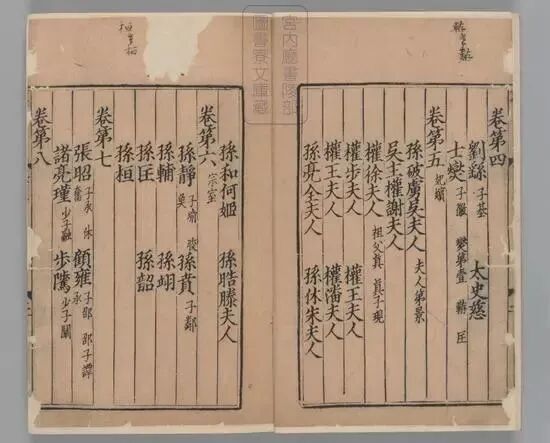 宮内廳書陵部
圖書寮文庫
卷第四
劉繇 子基 太史慈
士燮 子徽 燮弟壹 䵋 匡
卷第五 妃嬪
孫破虜吳夫人 夫人弟景
吳主權謝夫人
權徐夫人 祖父真 真子琨
權步夫人 權王夫人
權王夫人 權潘夫人
孫亮全夫人 孫休朱夫人
孫和何姬 孫晧滕夫人
卷第六 宗室
孫靜 子瑜 皎 奐 孫賁 子鄰
孫輔 孫翊
孫匡 孫韶
孫桓
卷第七
張昭 子承 休 奮 顧雍 子邵 邵子譚 承
諸葛瑾 少子融 步騭 少子闡
卷第八